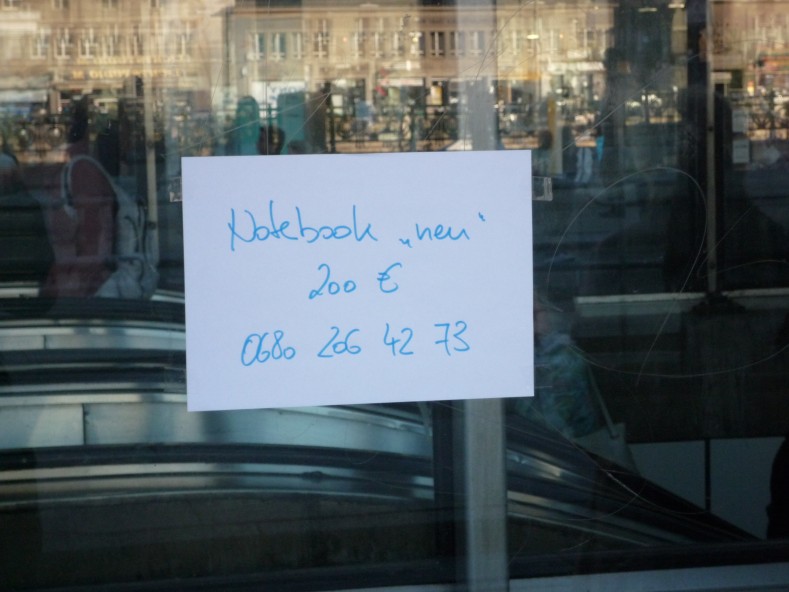 Notebook „neu“
200 €
0680 206 42 73